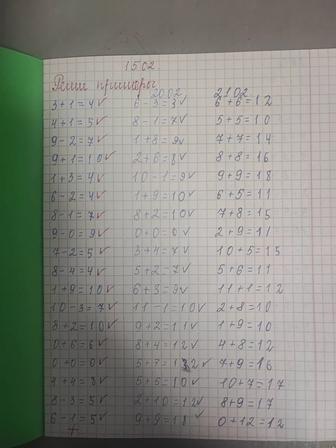 15.02.
Реши примеры
20.02 21.02
3+1=4✓ 6-3=3✓ 6+6=12
4+1=5✓ 8-1=7✓ 5+5=10
9-2=7✓ 1+8=9✓ 7+7=14
9+1=10✓ 2+6=8✓ 8+8=16
1+3=4✓ 10-1=9✓ 9+9=18
6-2=4✓ 1+9=10✓ 6+5=11
8-1=7✓ 8+2=10✓ 7+8=15
9-0=9✓ 0+0=0✓ 2+9=11
7-2=5✓ 3+4=7✓ 10+5=15
8-4=4✓ 5+2=7✓ 5+6=11
1+9=10✓ 6+3=9✓ 11+1=12
10-3=7✓ 11-1=10✓ 2+8=10
8+2=10✓ 9+2=11✓ 1+9=10
0+6=6✓ 8+4=12✓ 4+8=12
0+0=0✓ 5+7=12✓ 7+9=16
4+4=8✓ 5+5=10✓ 10+7=17
8-3=5✓ 2+10=12✓ 8+9=17
6-1=5✓ 9+9=18✓ 0+12=12